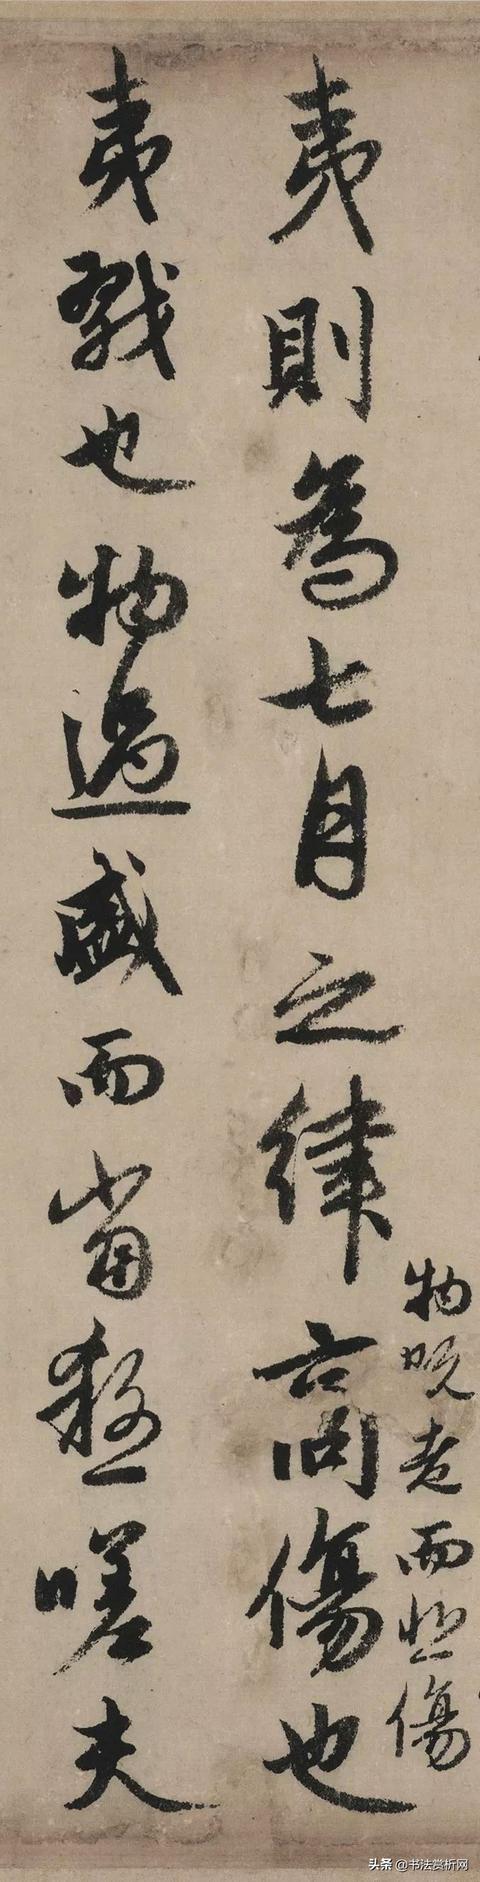 夷則為七月之律商傷也
物既老而悲傷
夷戮也物過盛而當殺嗟夫
头条 @书法赏析网